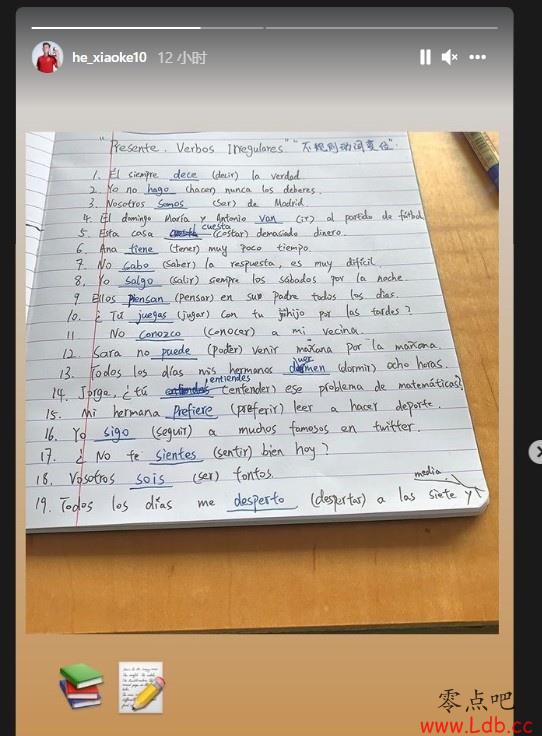 he_xiaoke10 12 小时
"Presente. Verbos Irregulares" "不规则动词变位".
1. Él siempre dece (decir) la verdad.
2. Yo no hago (hacer) nunca los deberes.
3. Nosotros somos (ser) de Madrid.
4. El domingo María y Antonio van (ir) al partido de fútbol
5. Esta casa cuesta (costar) demasiado dinero.
6. Ana tiene (tener) muy poco tiempo.
7. No sabo (saber) la respuesta, es muy difícil.
8. Yo salgo (salir) siempre los sábados por la noche.
9. Ellos piensan (pensar) en su padre todos los días.
10. ¿Tú juegas (jugar) con tu hijo por las tardes?
11 No conozco (conocer) a mi vecina.
12. Sara no puede (poder) venir mañana por la mañana.
13. Todos los días mis hermanos duermen (dormir) ocho horas.
14. Jorge, ¿tú entiendes (entender) ese problema de matemáticas?
15. Mi hermana prefiere (preferir) leer a hacer deporte.
16. Yo sigo (seguir) a muchos famosos en twitter.
17. ¿No te sientes (sentir) bien hoy?
18. Vosotros sois (ser) tontos.
19. Todos los días me desperto (despertar) a las siete y media.
零点吧
www.Ldb.cc